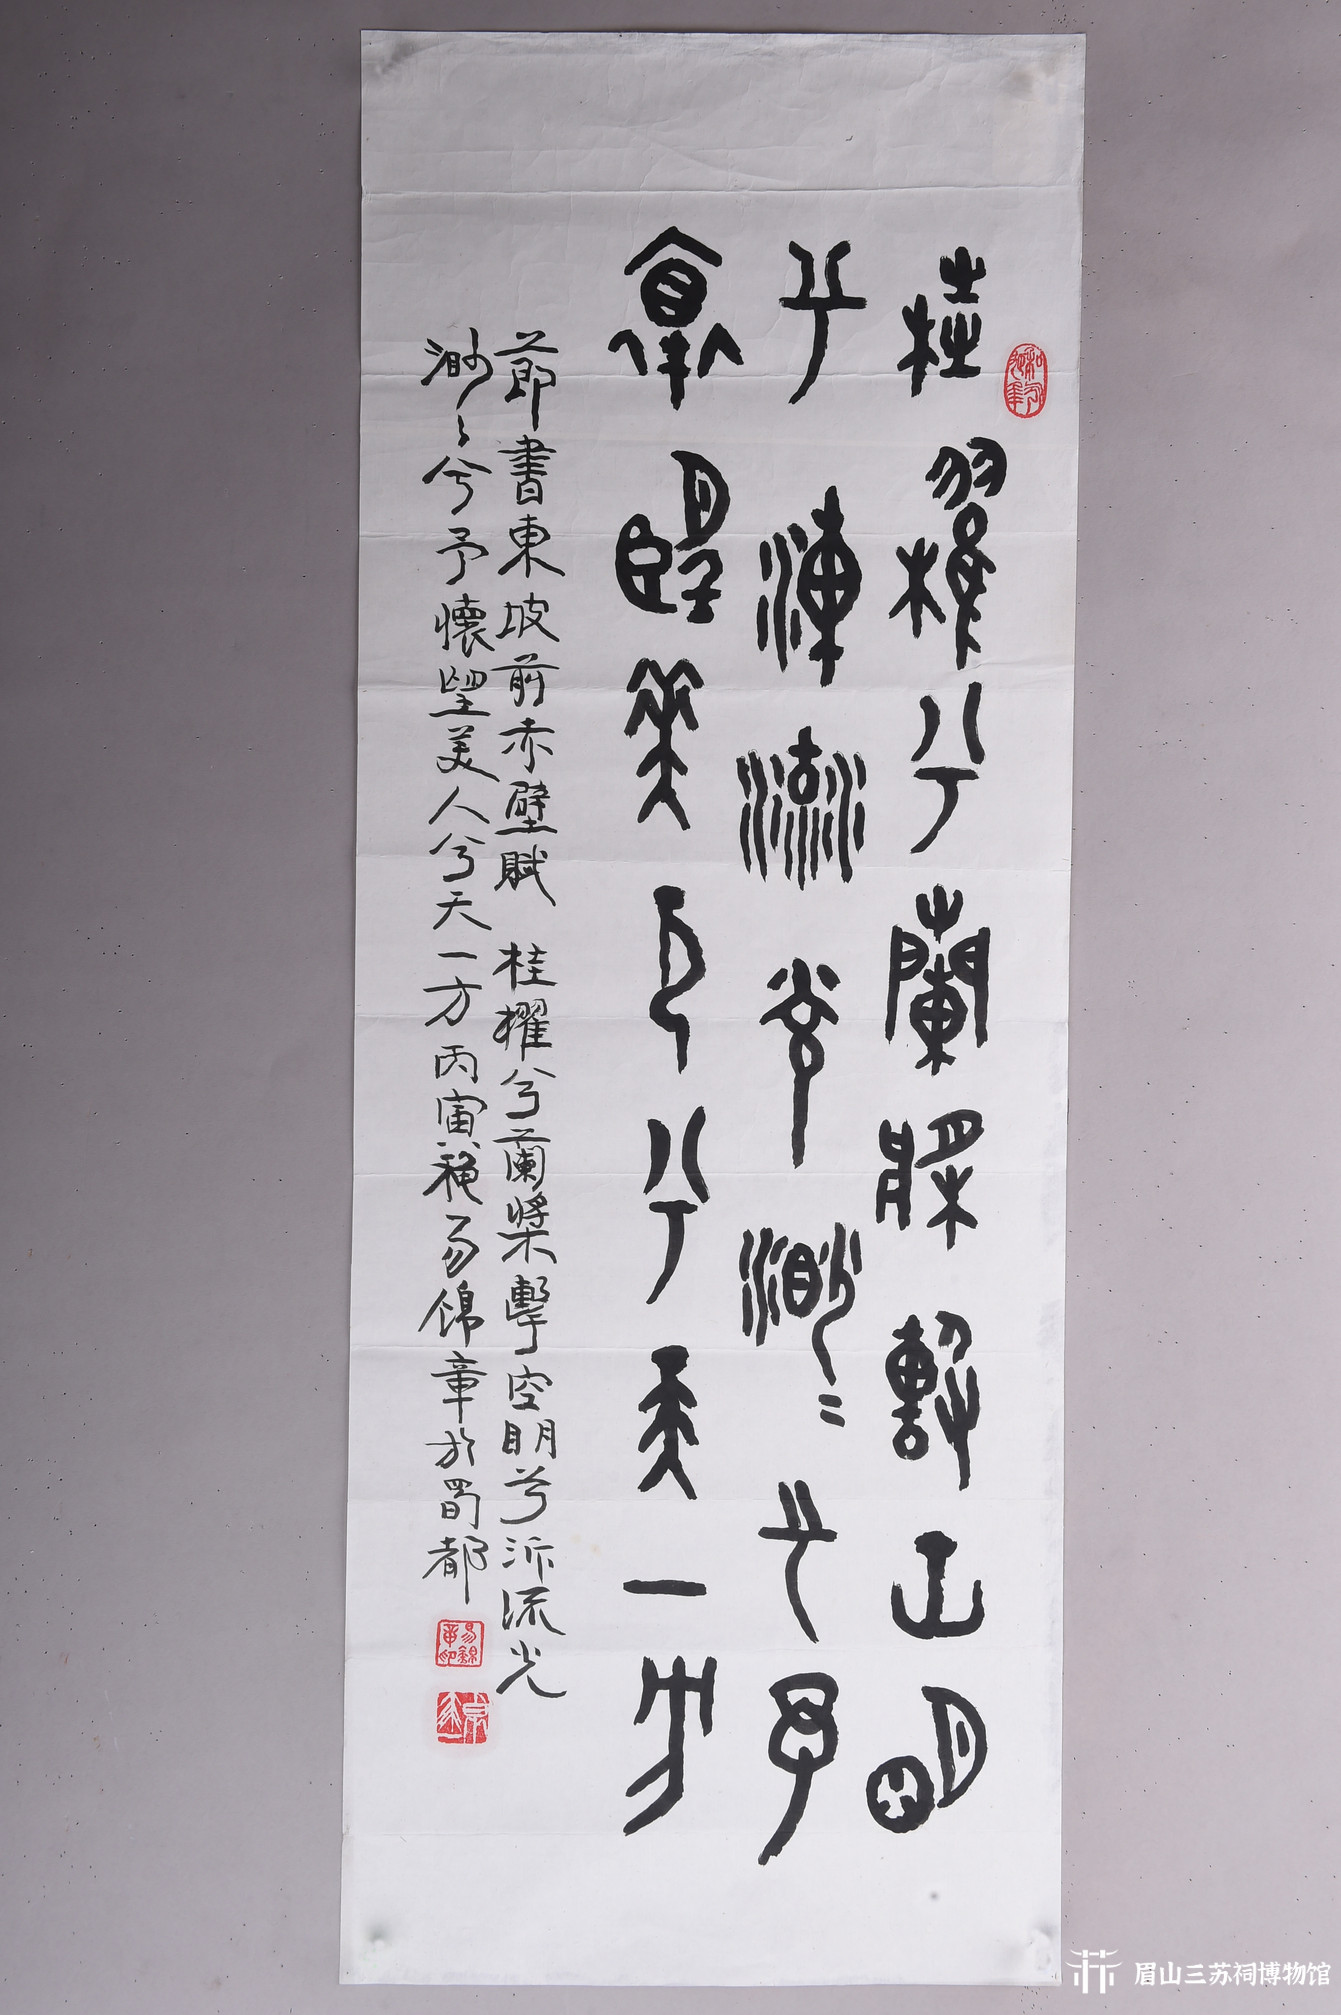 桂櫂兮蘭槳擊空明
兮泝流光渺〻兮予
懷望美人兮天一方
節書東坡前赤壁賦 桂櫂兮蘭槳擊空明兮泝流光
渺〻兮予懷望美人兮天一方 丙寅穐易錦章於蜀都
易錦章印
眉山三苏祠博物馆